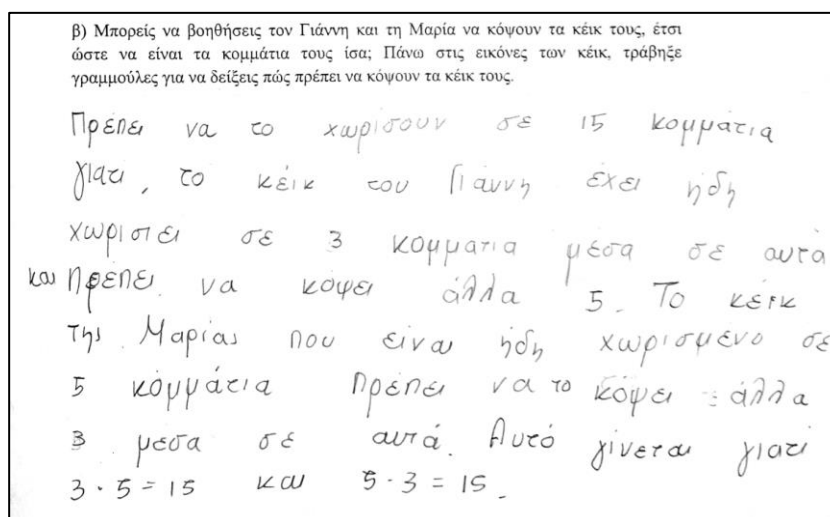 β) Μπορείς να βοηθήσεις τον Γιάννη και τη Μαρία να κόψουν τα κέικ τους, έτσι
ώστε να είναι τα κομμάτια τους ίσα; Πάνω στις εικόνες των κέικ, τράβηξε
γραμμούλες για να δείξεις πώς πρέπει να κόψουν τα κέικ τους.
Πρέπει να το χωρίσουν σε 15 κομμάτια
γιατι, το κέικ του Γιάννη έχει ήδη
χωριστει σε 3 κομματια μέσα σε αυτά
και πρέπει να κόψει άλλα 5. Το κέικ
της Μαρίας που είναι ήδη χωρισμένο σε
5 κομμάτια πρέπει να το κόψει άλλα
3 μεσα σε αυτά. Αυτό γίνεται γιατί
3 · 5 = 15 και 5 · 3 = 15.